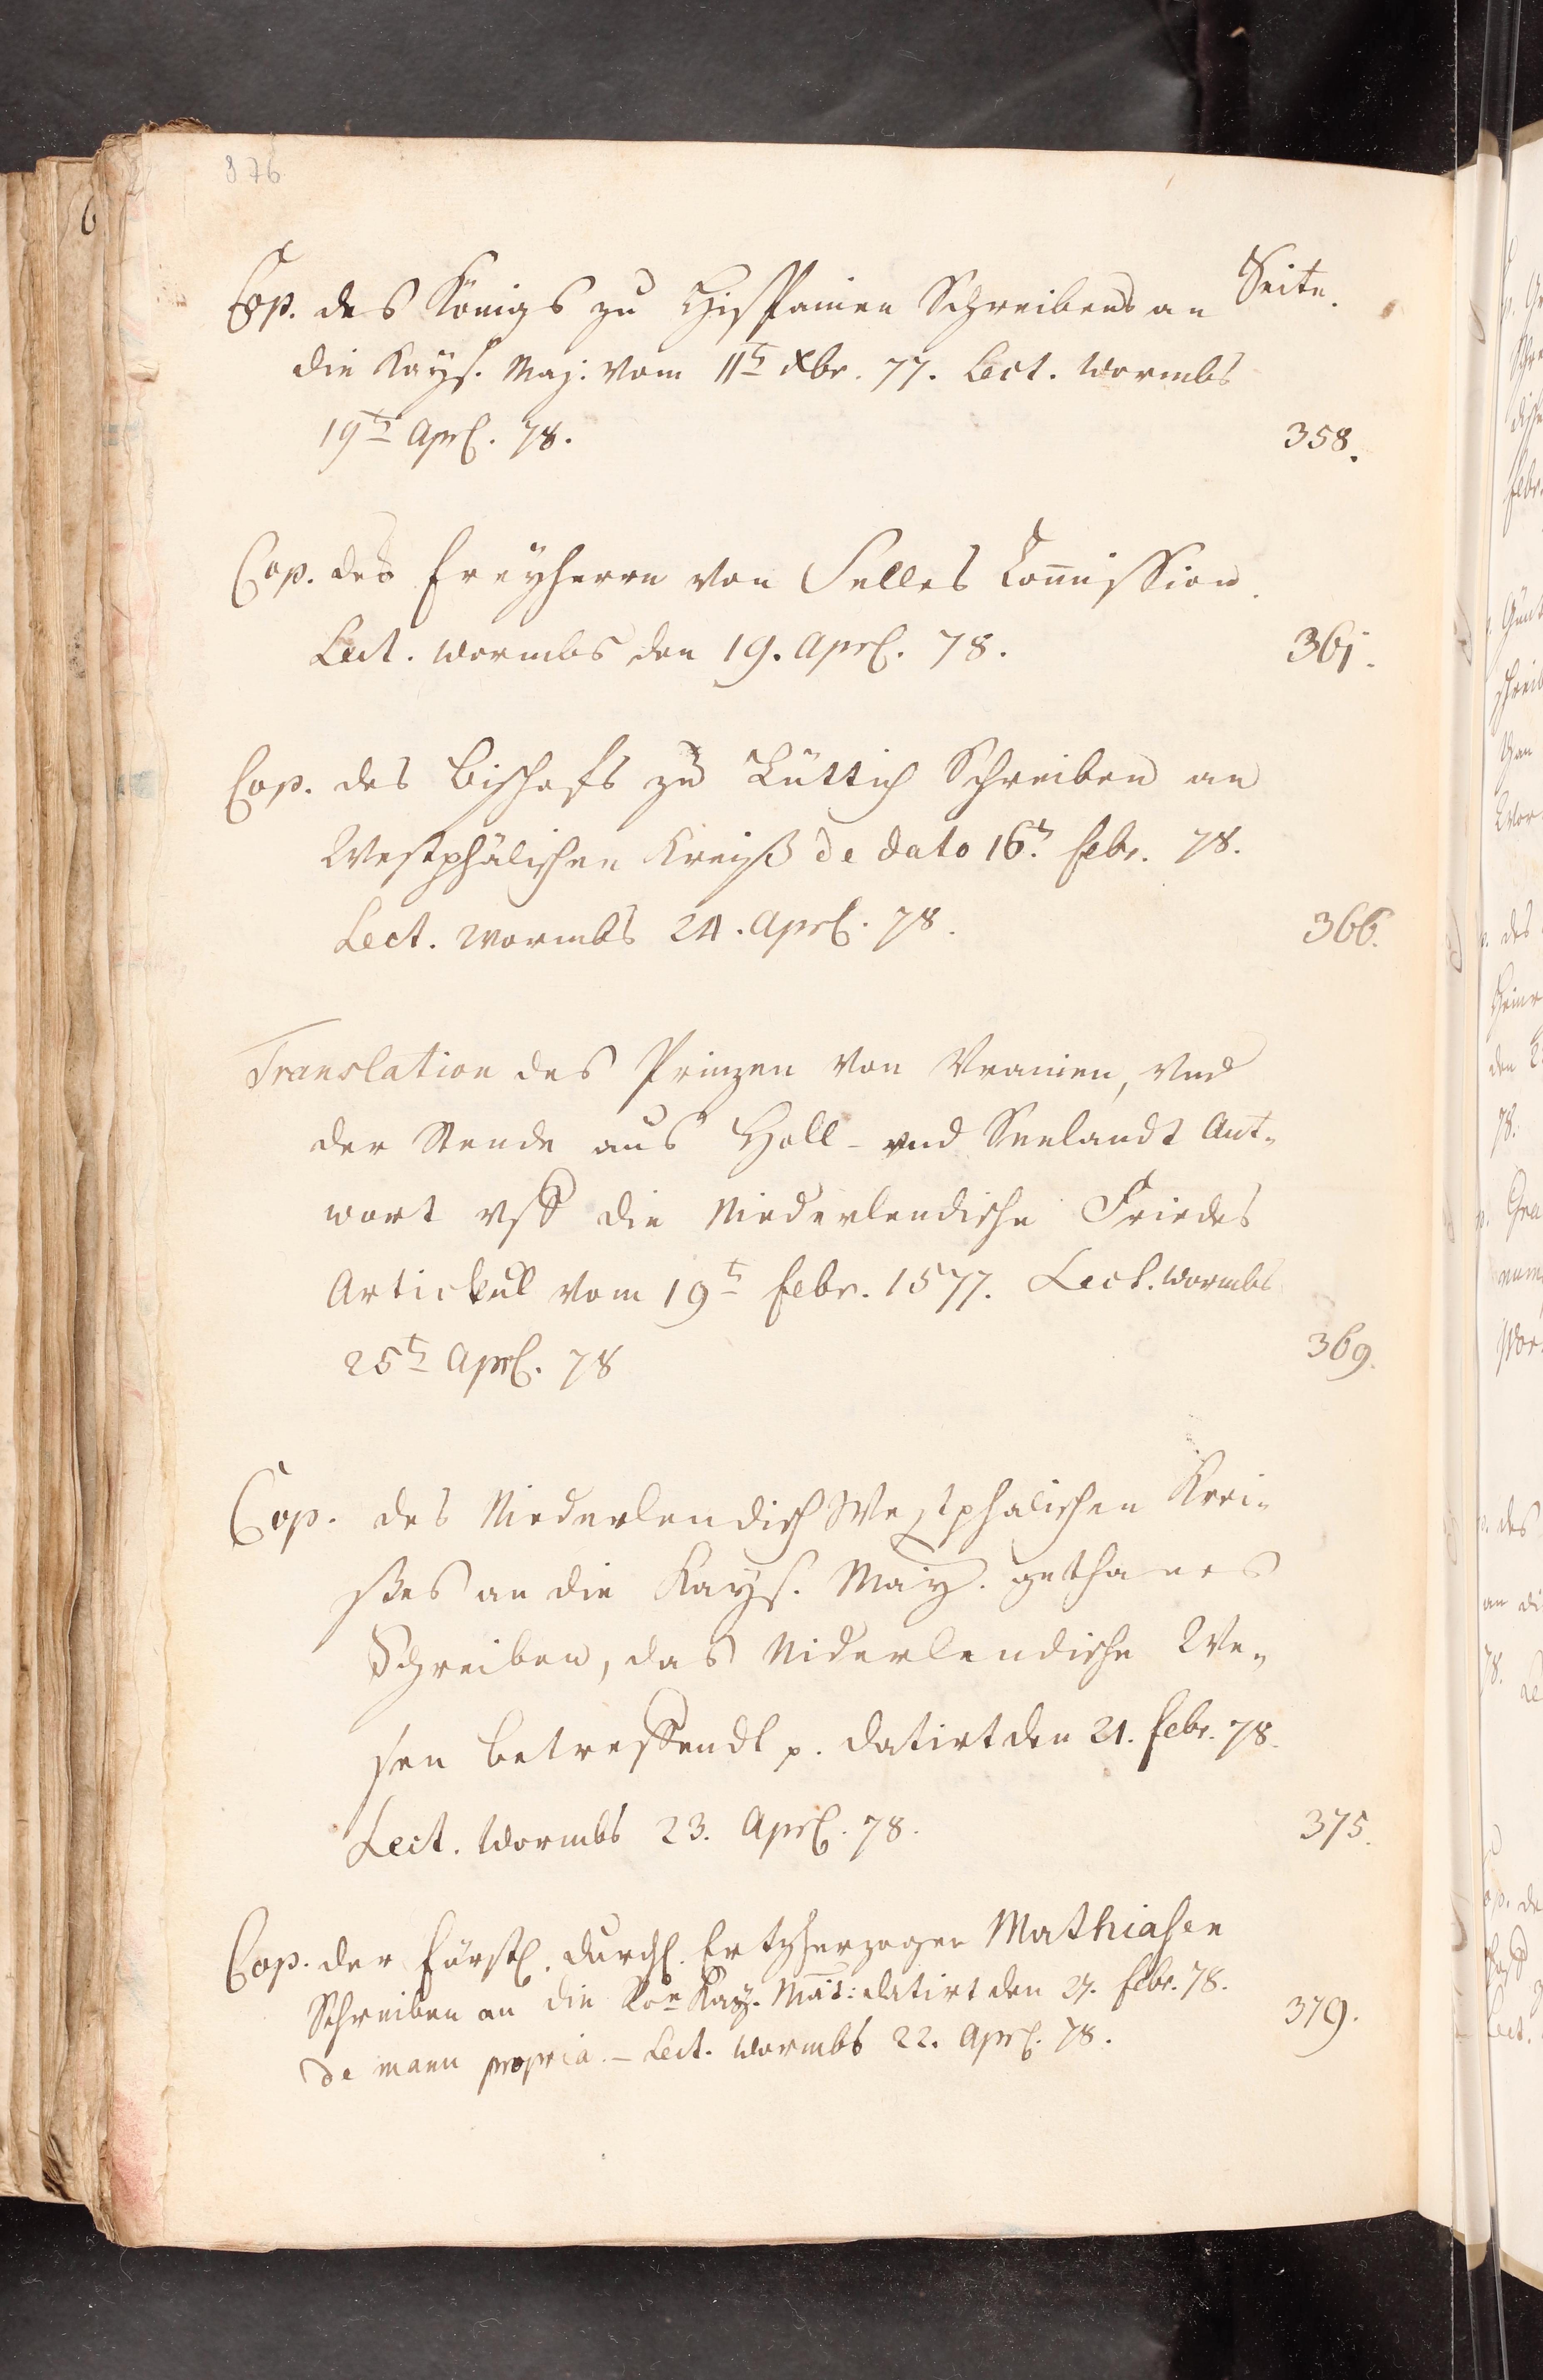 876
Seite.
Cop. des Königs zu Hispanien Schreibens an
die Kays. Maj: vom 11t Xbr. 77. Lect. Wormbs
19t Aprl. 78. 358.
Cop. des Freyherrn von Selles Commission.
Lect. Wormbs den 19. Aprl. 78. 361.
Cop. des Bischofs zu Lüttich Schreiben an
Westphälischen Kreyß de dato 16t. Febr. 78.
Lect. Wormbs 24. Aprl. 78. 366.
Translation des Prinzen von Vranien, vnd
der Stende aus Holl- vnd Seelandt Ant-
wort vff die Niederlendische Friedes
Artickul vom 19t Febr. 1577. Lect. Wormbs
25t Aprl. 78 369.
Cop. des Niederlendisch Westphälischen Krei-
ßes an die Kays. May. gethanes
Schreiben, das Niderlendische We-
sen betreffendt p. datirt den 21. Febr. 78.
Lect. Wormbs 23. Aprl. 78. 375.
Cop. der Fürstl. Durchl. Ertzherzogen Mathiasen
Schreiben an die Röm Kay. Mat: datirt den 27. Febr. 78.
de manu propria. - Lect. Wormbs 22. Aprl. 78. 379.